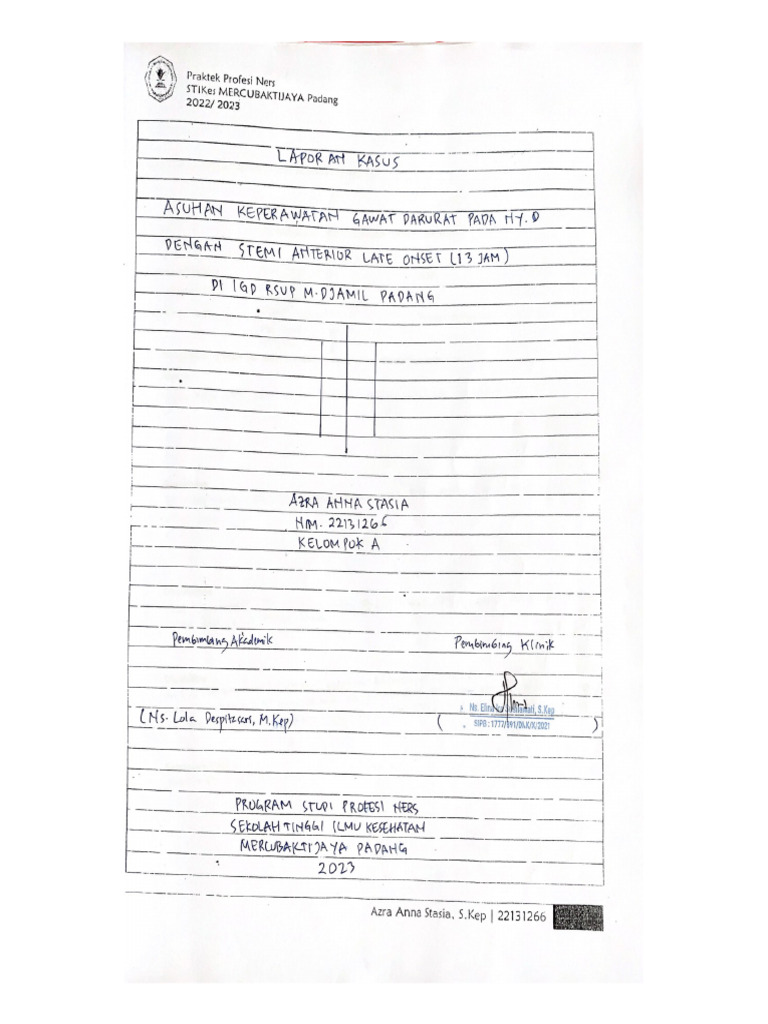 Praktek Profesi Ners
STIKes MERCUBAKTIJAYA Padang
2022/ 2023
LAPORAN KASUS
ASUHAN KEPERAWATAN GAWAT DARURAT PADA NY.D
DENGAN STEMI ANTERIOR LATE ONSET (13 JAM)
DI IGD RSUP M.DJAMIL PADANG
AZRA ANNA STASIA
NIM. 22131266
KELOMPOK A
Pembimbing Akademik
Pembimbing Klinik
Ns. , S.Kep
(Ns. Lola Despitasari, M.Kep)
( )
SIPB : 1777/
PROGRAM STUDI PROFESI NERS
SEKOLAH TINGGI ILMU KESEHATAN
MERCUBAKTIJAYA PADANG
2023
Azra Anna Stasia, S.Kep | 22131266